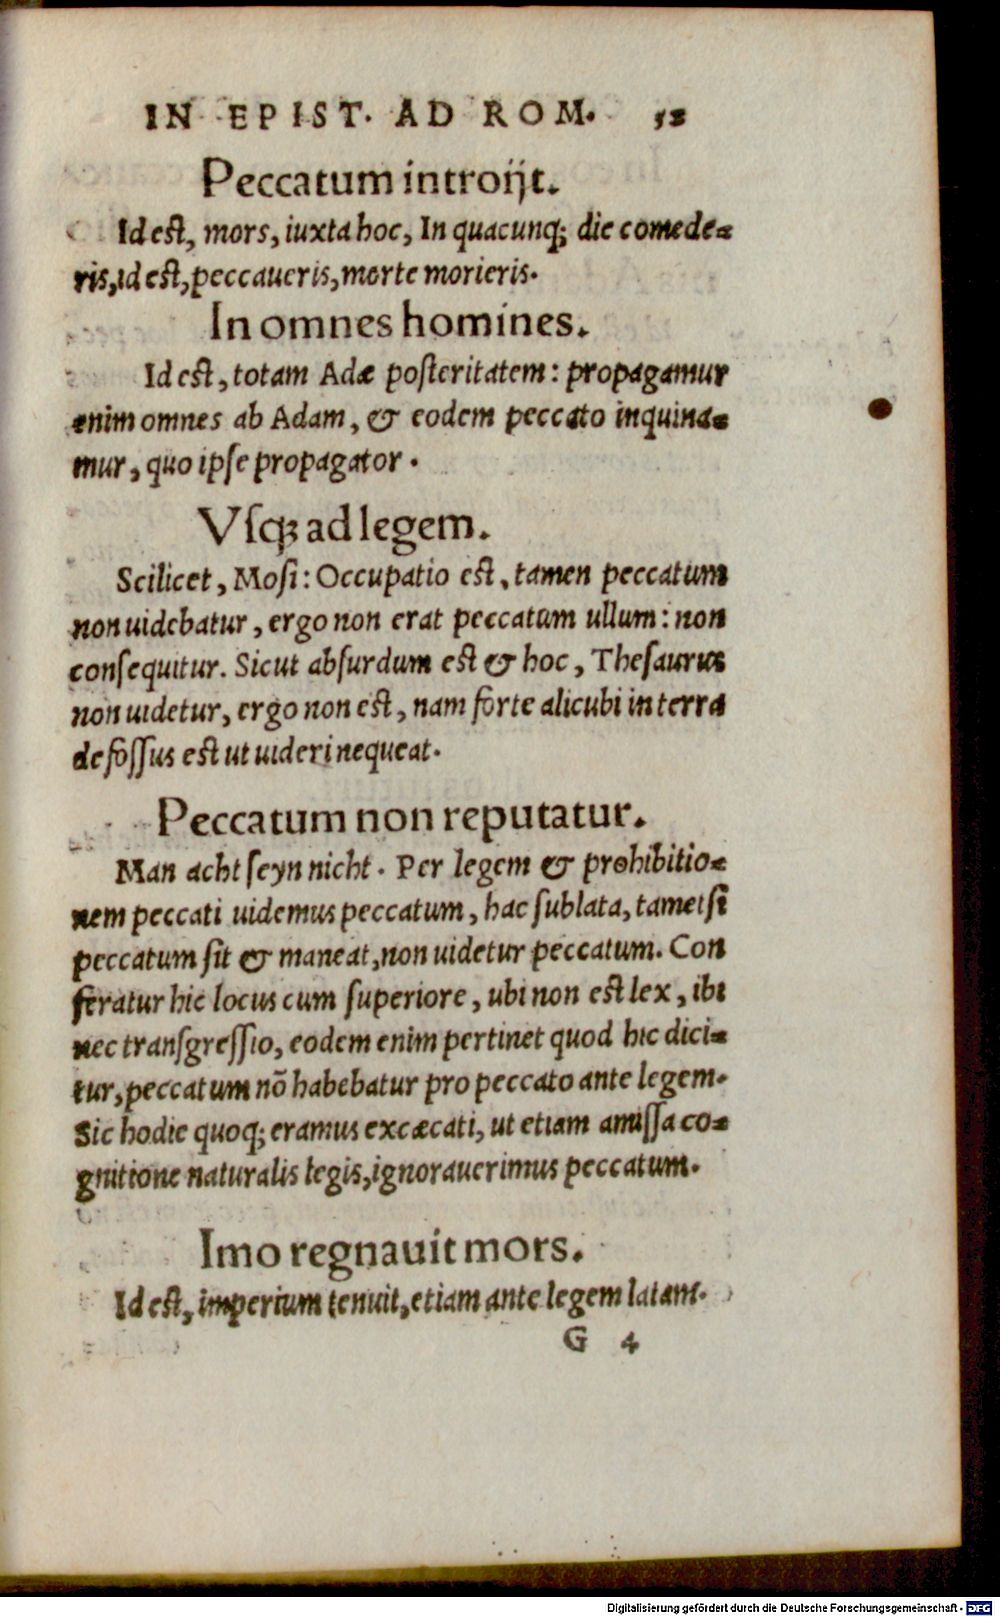 IN EPIST. AD ROM. 52
Peccatum introijt.
Id est, mors, iuxta hoc, In quacunq; die comede-
ris, id est, peccaueris, morte morieris.
In omnes homines.
Id est, totam Adæ posteritatem: propagamur
enim omnes ab Adam, & eodem peccato inquina-
mur, quo ipse propagator.
Vsq; ad legem.
Scilicet, Mosi: Occupatio est, tamen peccatum
non uidebatur, ergo non erat peccatum ullum: non
consequitur. Sicut absurdum est & hoc, Thesaurus
non uidetur, ergo non est, nam forte alicubi in terra
defossus est ut uideri nequeat.
Peccatum non reputatur.
Man acht seyn nicht. Per legem & prohibitio-
nem peccati uidemus peccatum, hac sublata, tametsi
peccatum sit & maneat, non uidetur peccatum. Con
feratur hic locus cum superiore, ubi non est lex, ibi
nec transgressio, eodem enim pertinet quod hic dici-
tur, peccatum nõ habebatur pro peccato ante legem.
Sic hodie quoq; eramus excæcati, ut etiam amissa co-
gnitione naturalis legis, ignorauerimus peccatum.
Imo regnauit mors.
Id est, imperium tenuit, etiam ante legem latam.
G 4
Digitalisierung gefördert durch die Deutsche Forschungsgemeinschaft - DFG